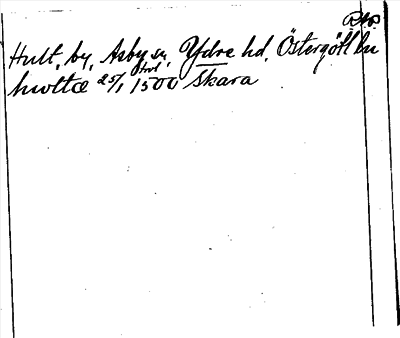 Hult, by, Asby sn, Ydre hd, Östergötl ln
hwltæ 25/1 1500 Skara